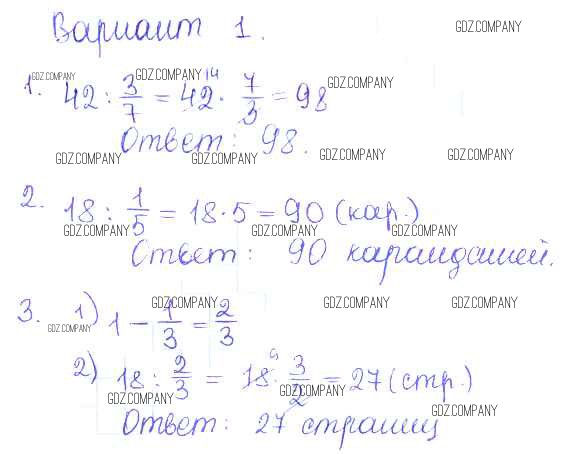 Вариант 1.
GDZ.COMPANY
GDZ.COMPANY GDZ.COMPANY GDZ.COMPANY
1. 42 : 3/7 = 42 14 · 7/3 = 98
Ответ: 98.
GDZ.COMPANY GDZ.COMPANY GDZ.COMPANY GDZ.COMPANY
2. 18 : 1/5 = 18 · 5 = 90 (кар.)
GDZ.COMPANY GDZ.COMPANY GDZ.COMPANY
Ответ: 90 карандашей.
GDZ.COMPANY GDZ.COMPANY GDZ.COMPANY
3. 1) 1 - 1/3 = 2/3
GDZ.COMPANY
2) 18 : 2/3 = 18 9 · 3/2 = 27 (стр.)
GDZ.COMPANY GDZ.COMPANY GDZ.COMPANY
Ответ: 27 страниц